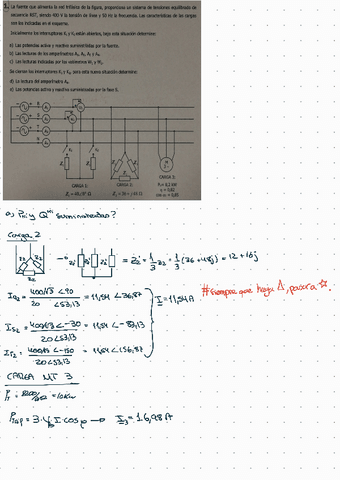 1. La fuente que alimenta la red trifásica de la figura, proporciona un sistema de tensiones equilibrado de
secuencia RST, siendo 400 V la tensión de línea y 50 Hz la frecuencia. Las características de las cargas
son las indicadas en el esquema.
Inicialmente los interruptores K₁ y K₂ están abiertos, bajo esta situación determine:
a) Las potencias activa y reactiva suministradas por la fuente.
b) Las lecturas de los amperímetros
c) Las lecturas indicadas por los vatímetros W₁ y W₂.
Se cierran los interruptores K₁ y K₂, para esta nueva situación determine:
d) La lectura del amperímetro
e) Las potencias activa y reactiva suministradas por la fase
CARGA 1:
CARGA 2:
CARGA 3:
Z₂ = 36 + j48 Ω
a) P y Q suministradas?
Carga 2
= Z₂' = 1/3 Z₂ = 1/3 (36 + 48j) = 12 + 16j
#siempre que haya Δ, pasar a
400/√3 <90 / 20 <53,13 = 11,54 <36,87
I = 11,54 A
400/√3 <-30 / 20 <53,13 = 11,54 <-83,13
400/√3 <-150 / 20 <53,13 = 11,54 <156,87
CARGA MT 3
= 10 kW
I cos φ → I₃ = 16,98 A